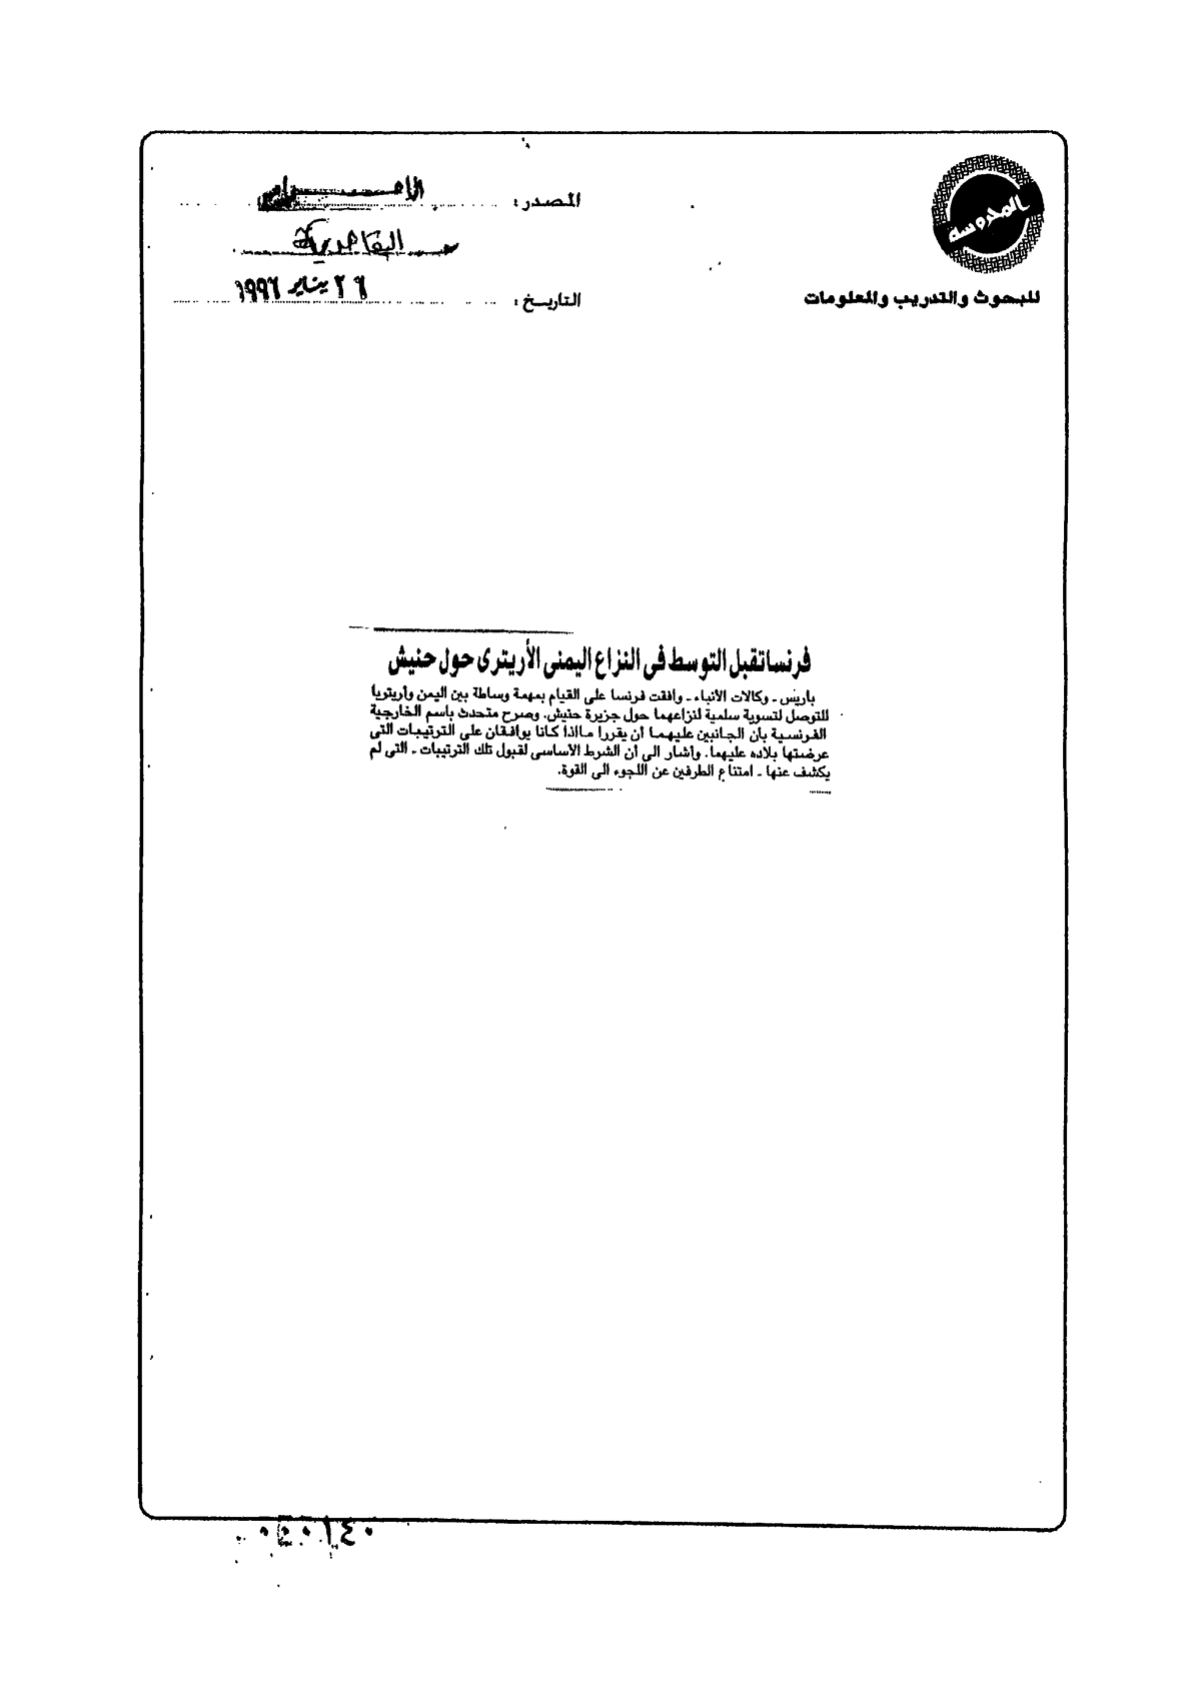 المدروسة
للبحوث والتدريب والمعلومات
المصدر : الأهرام
القاهرية
التاريخ : ٢٦ يناير ١٩٩٦
فرنسا تقبل التوسط فى النزاع اليمنى الأريترى حول حنيش
باريس ـ وكالات الأنباء ـ وافقت فرنسا على القيام بمهمة وساطة بين اليمن وأريتريا
للتوصل لتسوية سلمية لنزاعهما حول جزيرة حنيش. وصرح متحدث باسم الخارجية
الفرنسية بأن الجانبين عليهما أن يقررا ماإذا كانا يوافقان على الترتيبات التى
عرضتها بلاده عليهما. وأشار الى أن الشرط الأساسى لقبول تلك الترتيبات ـ التى لم
يكشف عنها ـ امتناع الطرفين عن اللجوء الى القوة.